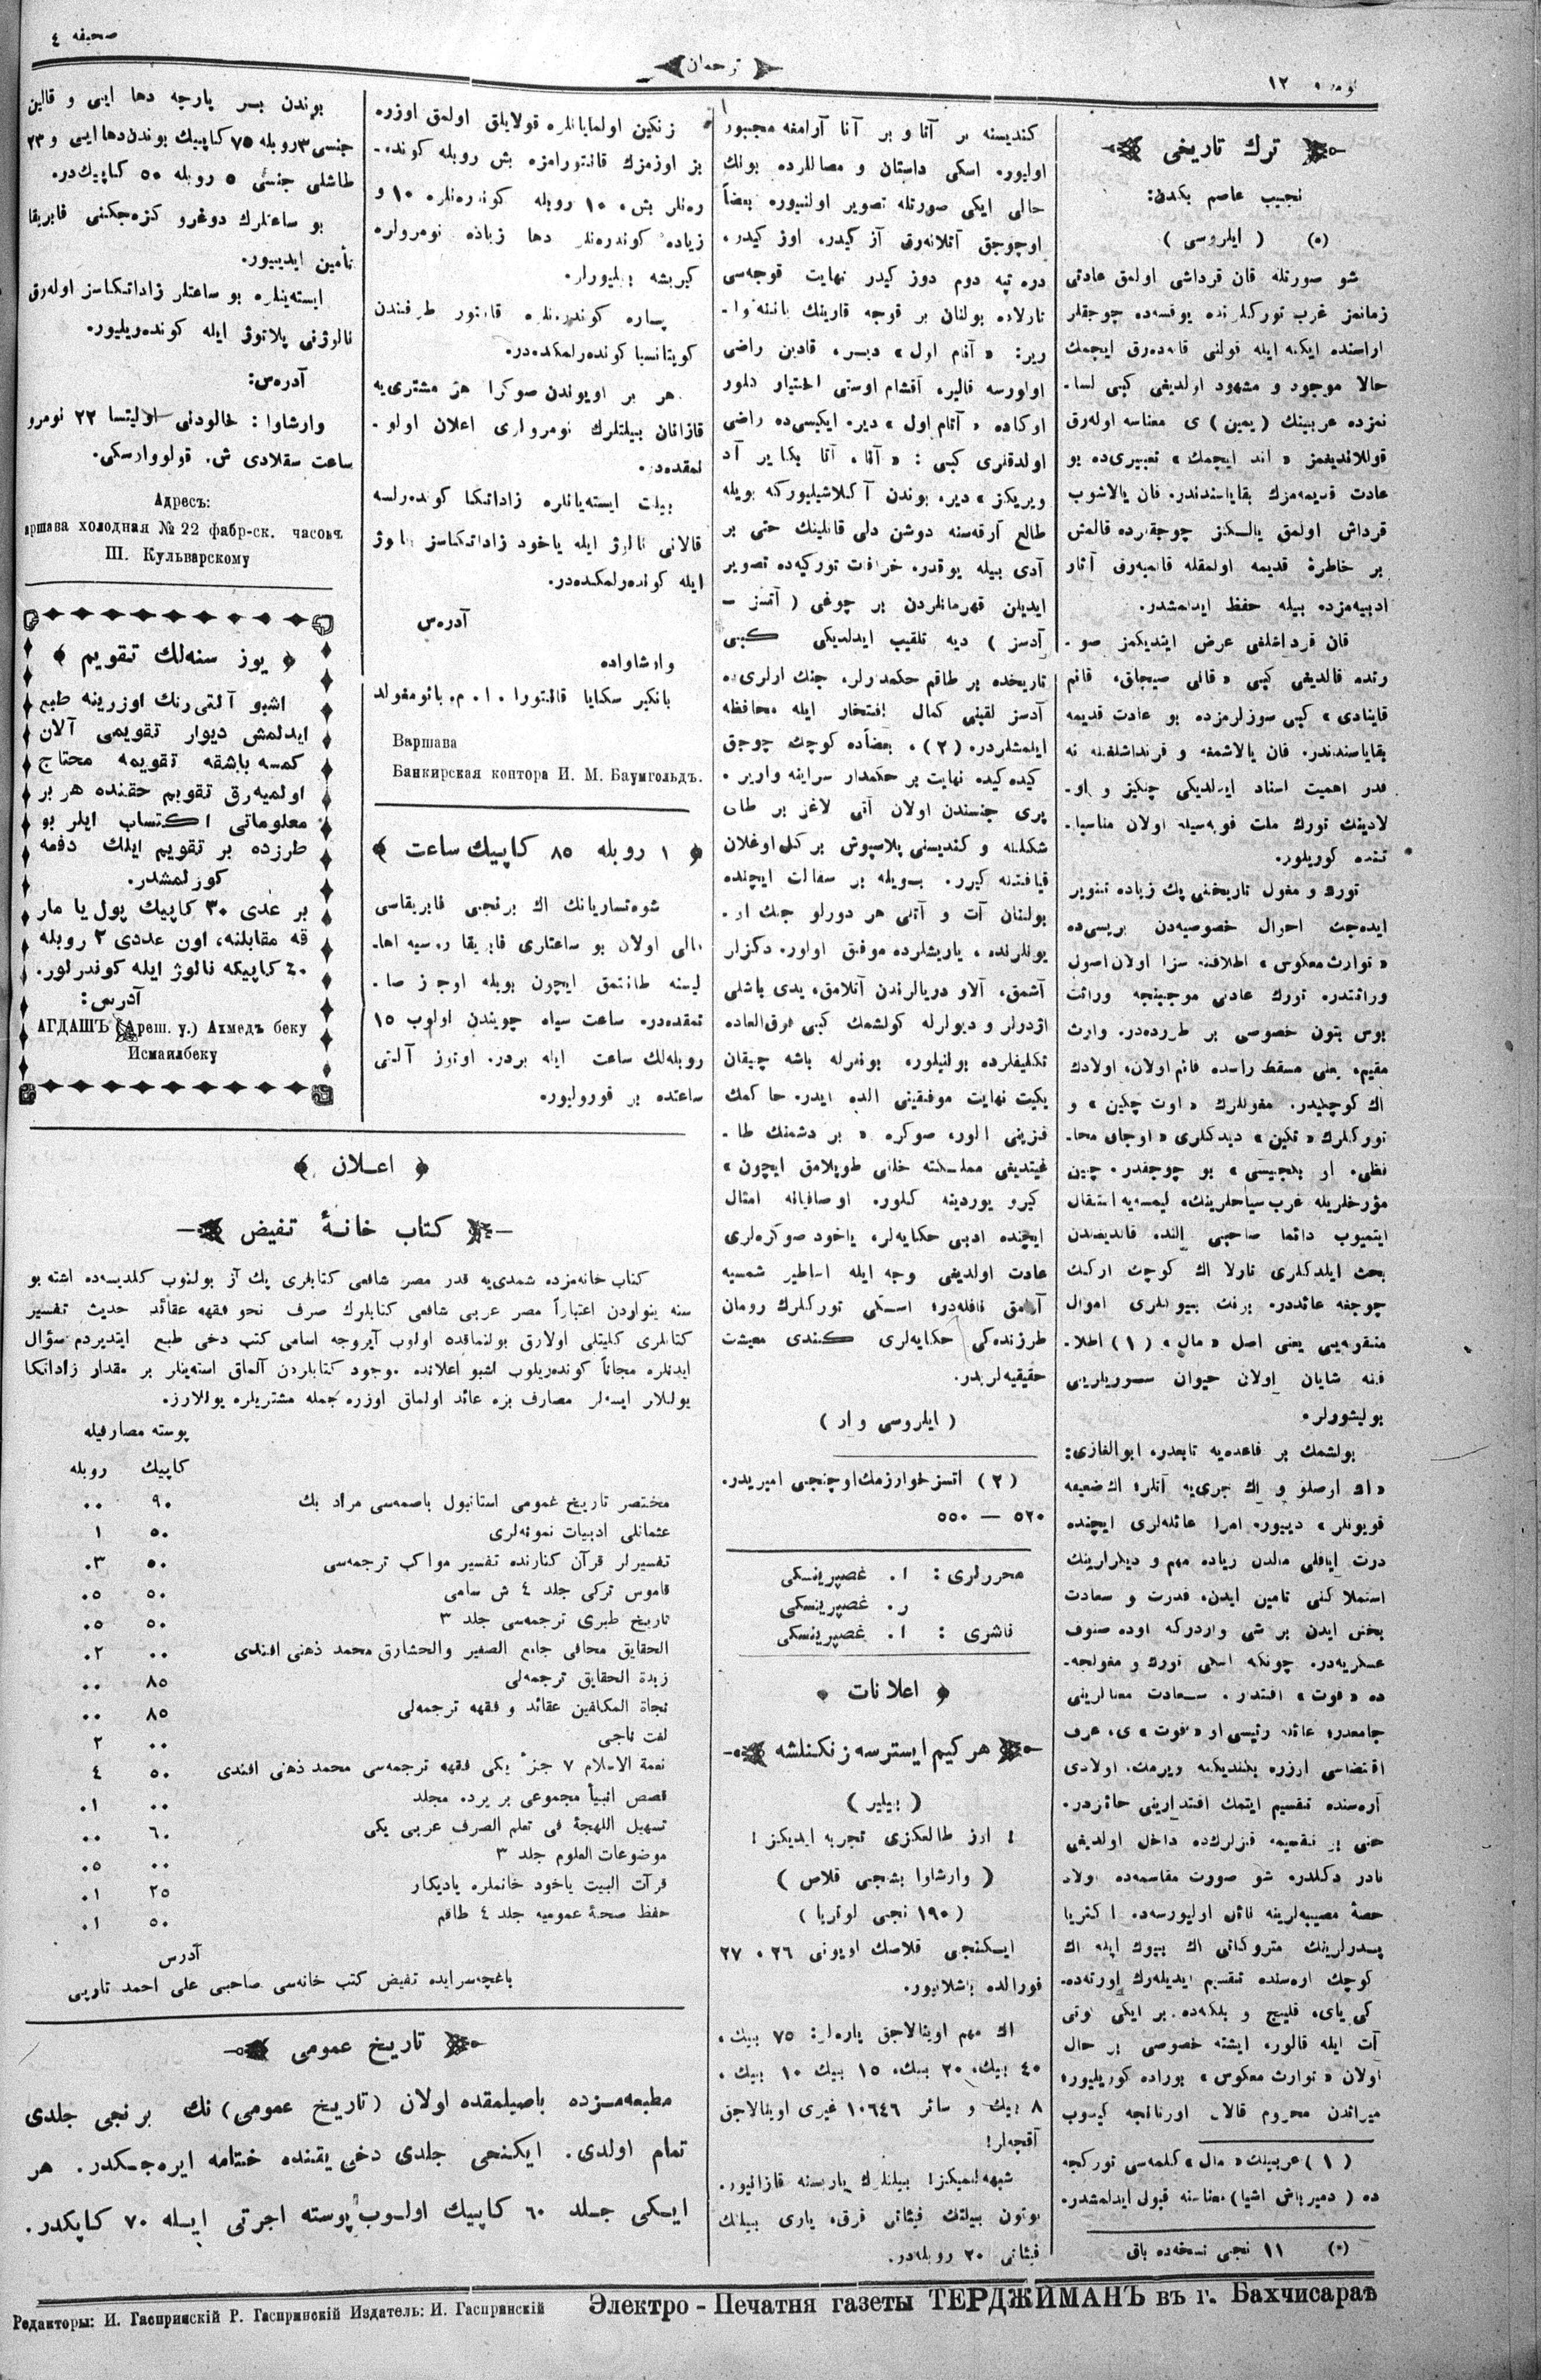 صحیفه ٤
ترجمان
نومرو ١٢
ترك تاریخی
نجیب عاصم بكدن:
(٥) ( ایلروسی )
شو صورتله قان قرداشی اولمق عادتی
زمانمز غرب توركلرنده یوقسه‌ده چوجقلر
اراسنده ایكنه ایله قولنی قانه‌ده‌رق ایچمك
حالا موجود و مشهود اولدیغی كبی لسا-
نمزده عربینك (یمین) ی معناسه اوله‌رق
قوللاندیغمز « اند ایچمك » تعبیری‌ده بو
عادت قدیمه‌مزك بقایاسندندر. قان یالاشوب
قرداش اولمق یالـكز چوجقلرده قالمش
بر خاطرهٔ قدیمه اولمقله قالمیه‌رق آثار
ادبیه‌مزده بیله حفظ ایدلمشدر.
قان قرداشلغی عرض ایتدیكمز صو-
رتده قالدیغی كبی « قانی صیجاق، قانم
قاینادی » كبی سوزلرمزده بو عادت قدیمه
بقایاسندندر. قان یالاشمغه و قرنداشلغنه نه
قدر اهمیت اسناد ایدلدیكی چنكیز و او-
لادینك تورك ملت قویه‌سیله اولان مناسبا-
تنده كوریلور.
تورك و مغول تاریخنی پك زیاده تنویر
ایده‌جك احوال خصوصیه‌دن بریسی‌ده
« توارث معكوس » اطلاقنه سزا اولان اصول
وراثتدر. تورك عادتی موجبنجه وراثت
بوس بتون خصوصی بر طرزده‌در. وارث
مقیم، یعنی مسقط راسده قائم اولان، اولادك
اك كوچكیدر. مغوللرك « اوت چكین » و
توركلرك « تكین » دیدكلری « اوجاق محا-
فظی. او بكجیسی » بو چوجقدر. چین
مؤرخلریله غرب سیاحلرینك، كیمسه‌یه انتقال
ایتمیوب دائما صاحبی النده قالدیغندن
بحث ایلدكلری تارلا اك كوچك اركك
چوجغه عائددر.
منقوله‌یی یعنی اصل « مال » (١) اطلا-
قنه شایان اولان حیوان سوریلرینی
بولیشورلر.
بولشمك بر قاعده‌یه تابعدر. ابوالغازی:
قویونلر » دییور. امرا عائله‌لری ایچنده
درت ایاقلی مالدن زیاده مهم و دیكرلرینك
استملاكنی تامین ایدن، قدرت و سعادت
بخش ایدن بر شی واردركه اوده صنوف
عسكریه‌در. چونكه اسكی تورك و مغولجه-
ده « قوت » اقتدار. سـعادت معنالرینی
جامعدر؛ عائله رئیسی او « قوت » ی، عرف
اقتضاسی اوزره بكندیكنه ویرمك، اولادی
آره‌سنده تقسیم ایتمك اقتدارینی حائزدر.
حتی بو تقسیمه قیزلرك‌ده داخل اولدیغی
نادر دكلدر. شو صورت مقاسمه‌ده اولاد
حصهٔ مصیبه‌لرینه نائل اولیورسه‌ده اكثریا
پـدرلرینك متروكاتی اك بیوك ایله اك
كوچك اره‌سنده تقسیم ایدیله‌رك اورته‌ده-
كی یای، قلیچ و بلكه‌ده بر ایكی قوتی
آت ایله قالور. ایشته خصوصی بر حال
اولان « توارث معكوس » بوراده كوریلیور؛
میراثدن محروم قالان اورتانجه كیـوب
(١) عربینك « مال » كلمه‌سی توركجه
ده ( دمیرباش اشیا) معناسنه قبول ایدلمشدر.
(٥) ١١ نجی نسخه‌ده باق
كندیسنه بر آتا و بر آنا آرامغه مجبور
اولیور. اسكی داستان و مصاللرده بونك
حالی ایكی صورتله تصویر اولنیور، بعضاً
اوچوجق آتلانه‌رق آز كیدر، اوز كیدر،
دره تپه دوم دوز كیدر نهایت قوجه‌سی
تارلاده بولنان بر قوجه قارینك یاننه وا-
ریر: « آنام اول » دیـر، قادین راضی
اولورسه قالیر، آقشام اوستی اختیار كلور
اوكاده « آتام اول » دیر. ایكیسی‌ده راضی
اولدقلری كبی : « آنا، آتا بكا بر آد
ویریكز » دیر. بوندن آكلاشیلیوركه بویله
طالع آرقه‌سنه دوشن دلی قانلینك حتی بر
آدی بیله یوقدر. خرافات توركیه‌ده تصویر
ایدیلن قهرمانلردن بر چوغی ( آتسز -
آدسز ) دیه تلقیب ایدلدیكی كـبی
تاریخده بر طاقم حكمدرلر، جنك ارلری‌ده
آدسز لقبنی كمال افتخار ایله محافظه
ایلمشلردر. (٢). بعضاًده كوچك چوجق
كیده كیده نهایت بر حكمدار سراینه واریر.
پری جنسندن اولان آتی لاغر بر طای
شكلنه و كندیسنی پلاسپوش بر كل اوغلان
قیافتنه كیرر. بـویله بر سفالت ایچنده
بولنان آت و آتلی هر دورلو جنك او-
یونلرنده، یاریشلرده موفق اولور. دكزلر
آشمق، آلاو دریالرندن آتلامق، یدی باشلی
اژدرلر و دیولرله كولشمك كبی فوق‌العاده
تكلیفلرده بولنیلور. بونلرله باشه چیقان
یكیت نهایت موفقیتنی الده ایدر. حاكمك
قیزینی الور، صوكره « بر دشمنك طا-
غیتدیغی مملـكته خلقی طوپلامق ایچون »
كیرو یوردینه كلور. اوصافیانه امثال
ایچنده ادبی حكایه‌لر، یاخود صوكره‌لری
عادت اولدیغی وجه ایله اساطیر شمسیه
آرامق نافله‌در؛ اسـكی توركلرك رومان
طرزنده‌كی حكایه‌لری كـندی معیشت
حقیقیه‌لریدر.
( ایلروسی وار )
(٢) اتسز خوارزمك اوچنجی امیریدر.
٥٢٠ — ٥٥٠
محررلری: ا. غصپرینسكی
ر. غصپرینسكی
ناشری : ا. غصپرینسكی
اعلانات
هر كیم ایسترسه زنكنلشه
( بیلیر )
! اوز طالعكزی تجربه ایدیكز !
( وارشاوا بشنجی قلاص )
(١٩٠ نجی لوتریا )
ایـكنجی قلاصك اویونی ٢٦، ٢٧
فورالده باشلانیور.
اك مهم اوینالاجق پاره‌لر: ٧٥ بیك،
٤٠ بیك، ٢٠ بیك، ١٥ بیك ١٠ بیك،
٨ بیك و سائر ١٠٦٤٦ غیری اوینالاجق
آقچه‌لر!
شبهه ایتمیكز! بیلتلرك یاریسنه قازانیور.
بوتون بیلتك فیئاتی فرق، یاری بیلتك
فیئاتی ٢٠ روبله‌در.
زنكین اولمایانلره قولایلق اولمق اوزره
بز اوزمزك قانتورامزه بش روبله كونده-
ره‌نلر بش، ١٠ روبله كونده‌ره‌نلره ١٠ و
زیاده كوندره‌نلر دها زیاده نومرولره
كیریشه بیلیورلر.
پـاره كوندرنلره قانتور طرفندن
كویتانسیا كونده‌رلمكده‌در.
هر بر اویوندن صوكرا هر مشتری‌یه
قازانان بیلتلرك نومرولری اعلان اولو-
نمقده‌در.
بیلت ایسته‌یانلره زاداتكا كونده‌رلسه
قالانی نالوژ ایله یاخود زاداتكاسز نالوژ
ایله كونده‌رلمكده‌در.
آدره‌س
وارشاواده
بانكیر سكایا قانتورا. ا. م. بائومغولد
Варшава
Банкирская контора И. М. Баумгольдъ.
١ روبله ٨٥ كاپیك ساعت
شوه‌تساریانك اك برنجی فابریقاسی
مالی اولان بو ساعتلری فابریقا روسیه اها-
لیسنه طانتمق ایچون بویله اوجوز صا-
تمقده‌در. ساعت سیاه چویندن اولوب ١٥
روبله‌لك ساعت ایله بردر. اوتوز آلتی
ساعتده بر قورولیور.
بوندن بـر پارچه دها ایی و قالین
جنسی ٣ روبله ٧٥ كاپیك بوندن دها ایی و ٢٣
طاشلی جنسی ٥ روبله ٥٠ كاپیك‌در.
بو ساعتلرك دوغرو كزه‌جكنی فابریقا
تأمین ایدییور.
ایسته‌ینلره بو ساعتلر زاداتكاسز اوله‌رق
نالوژنی پلاتوژ ایله كونده‌ریلیور.
آدره‌س:
وارشاوا : خالودنی اولیتسا ٢٢ نومرو
ساعت سقلادی ش. قولووارسكی.
Адресъ:
аршава холодная № 22 фабр-ск. часовъ
Ш. Кульварскому
یوز سنه‌لك تقویم
اشبو آلتی رنك اوزرینه طبع
ایدلمش دیوار تقویمی آلان
كمسه باشقه تقویمه محتاج
اولمیه‌رق تقویم حقنده هر بر
معلوماتی اكتساب ایلر بو
طرزده بر تقویم ایلك دفعه
كورلمشدر.
بر عدی ٣٠ كاپیك پول یا مار
قه مقابلنه، اون عددی ٢ روبله
٤٠ كاپیكه نالوژ ایله كوندرلور.
آدرس:
АГДАШЪ (Ареш. у.) Ахмедъ беку
Исмаилбеку
اعـلان
كتاب خانهٔ تفیض
كتاب خانه‌مزده شمدی‌یه قدر مصر شافعی كتابلری پك آز بولنوب كلدیسه‌ده اشته بو
سنه ینواردن اعتباراً مصر عربی شافعی كتابلرك صرف نحو فقهه عقائد حدیث تفسیر
كتابلری كلیتلی اولارق بولنماقده اولوب آیروجه اسامی كتب دخی طبع ایتدیردم سؤال
ایدنلره مجاناً كونده‌ریلوب اشبو اعلانده موجود كتابلردن آلماق استه‌ینلر بر مقدار زاداتكا
یوللار ایسه‌لر مصارف بزه عائد اولماق اوزره جمله مشتریلره یوللارز.
پوسته مصارفیله
كاپیك روبله
مختصر تاریخ عمومی استانبول باصمه‌سی مراد بك ٩٠ ٠٠
عثمانلی ادبیات نمونه‌لری ٥٠ ١
تفسیرلر قرآن كنارنده تفسیر مواكب ترجمه‌سی ٥٠ ٠٣
قاموس تركی جلد ٤ ش سامی ٥٠ ٠٥
تاریخ طبری ترجمه‌سی جلد ٣ ٥٠ ٠٥
الحقایق محافی جامع الصغیر والحشارق محمد ذهنی افندی ٠٠ ٠٢
زبدة الحقایق ترجمه‌لی ٨٥ ٠٠
نجاة المكلفین عقائد و فقهه ترجمه‌لی ٨٥ ٠٠
لغت ناجی ٠٠ ٢
نعمة الاسلام ٧ جزؤ یكی فقهه ترجمه‌سی محمد ذهنی افندی ٥٠ ٤
قصص انبیأ مجموعی بر یرده مجلد ٠٠ ٠١
تسهیل اللهجة فی تعلم الصرف عربی یكی ٦٠ ٠٠
موضوعات العلوم جلد ٣ ٠٠ ٠٥
قرآت البیت یاخود خانملره یادیكار ٢٥ ٠١
حفظ صحهٔ عمومیه جلد ٤ طاقم ٥٠ ٠١
آدرس
باغچه‌سرایده تفیض كتب خانه‌سی صاحبی علی احمد تارپی
تاریخ عمومی
مطبعه‌مـزده باصیلمقده اولان (تاریخ عمومی) نك برنجی جلدی
تمام اولدی. ایكنجی جلدی دخی یقنده ختامه ایره‌جـكدر. هر
ایـكی جـلد ٦٠ كاپیك اولـوب پوسته اجرتی ایـله ٧٠ كاپكدر.
Редакторы: И. Гаспринскій Р. Гаспринскій Издатель: И. Гаспринскій
Электро - Печатня газеты ТЕРДЖИМАНЪ въ г. Бахчисараѣ